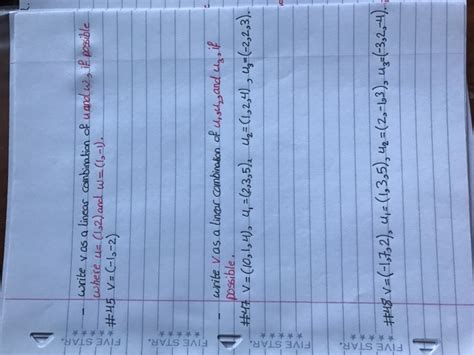 - write v as a linear combination of u and w, if possible
where u= (1,2) and w= (1,-1).
#45 v= (-1,-2)
- write v as a linear combination of u₁, u₂, and u₃, if
possible.
#47 v= (10,1,4), u₁= (2,3,5), u₂= (1,2,4), u₃=(-2,2,3).
#48 v= (-1,7,2), u₁= (1,3,5), u₂= (2,-1,3), u₃=(-3,2,-4).
FIVE STAR.
FIVE STAR.
FIVE STAR.
FIVE STAR.